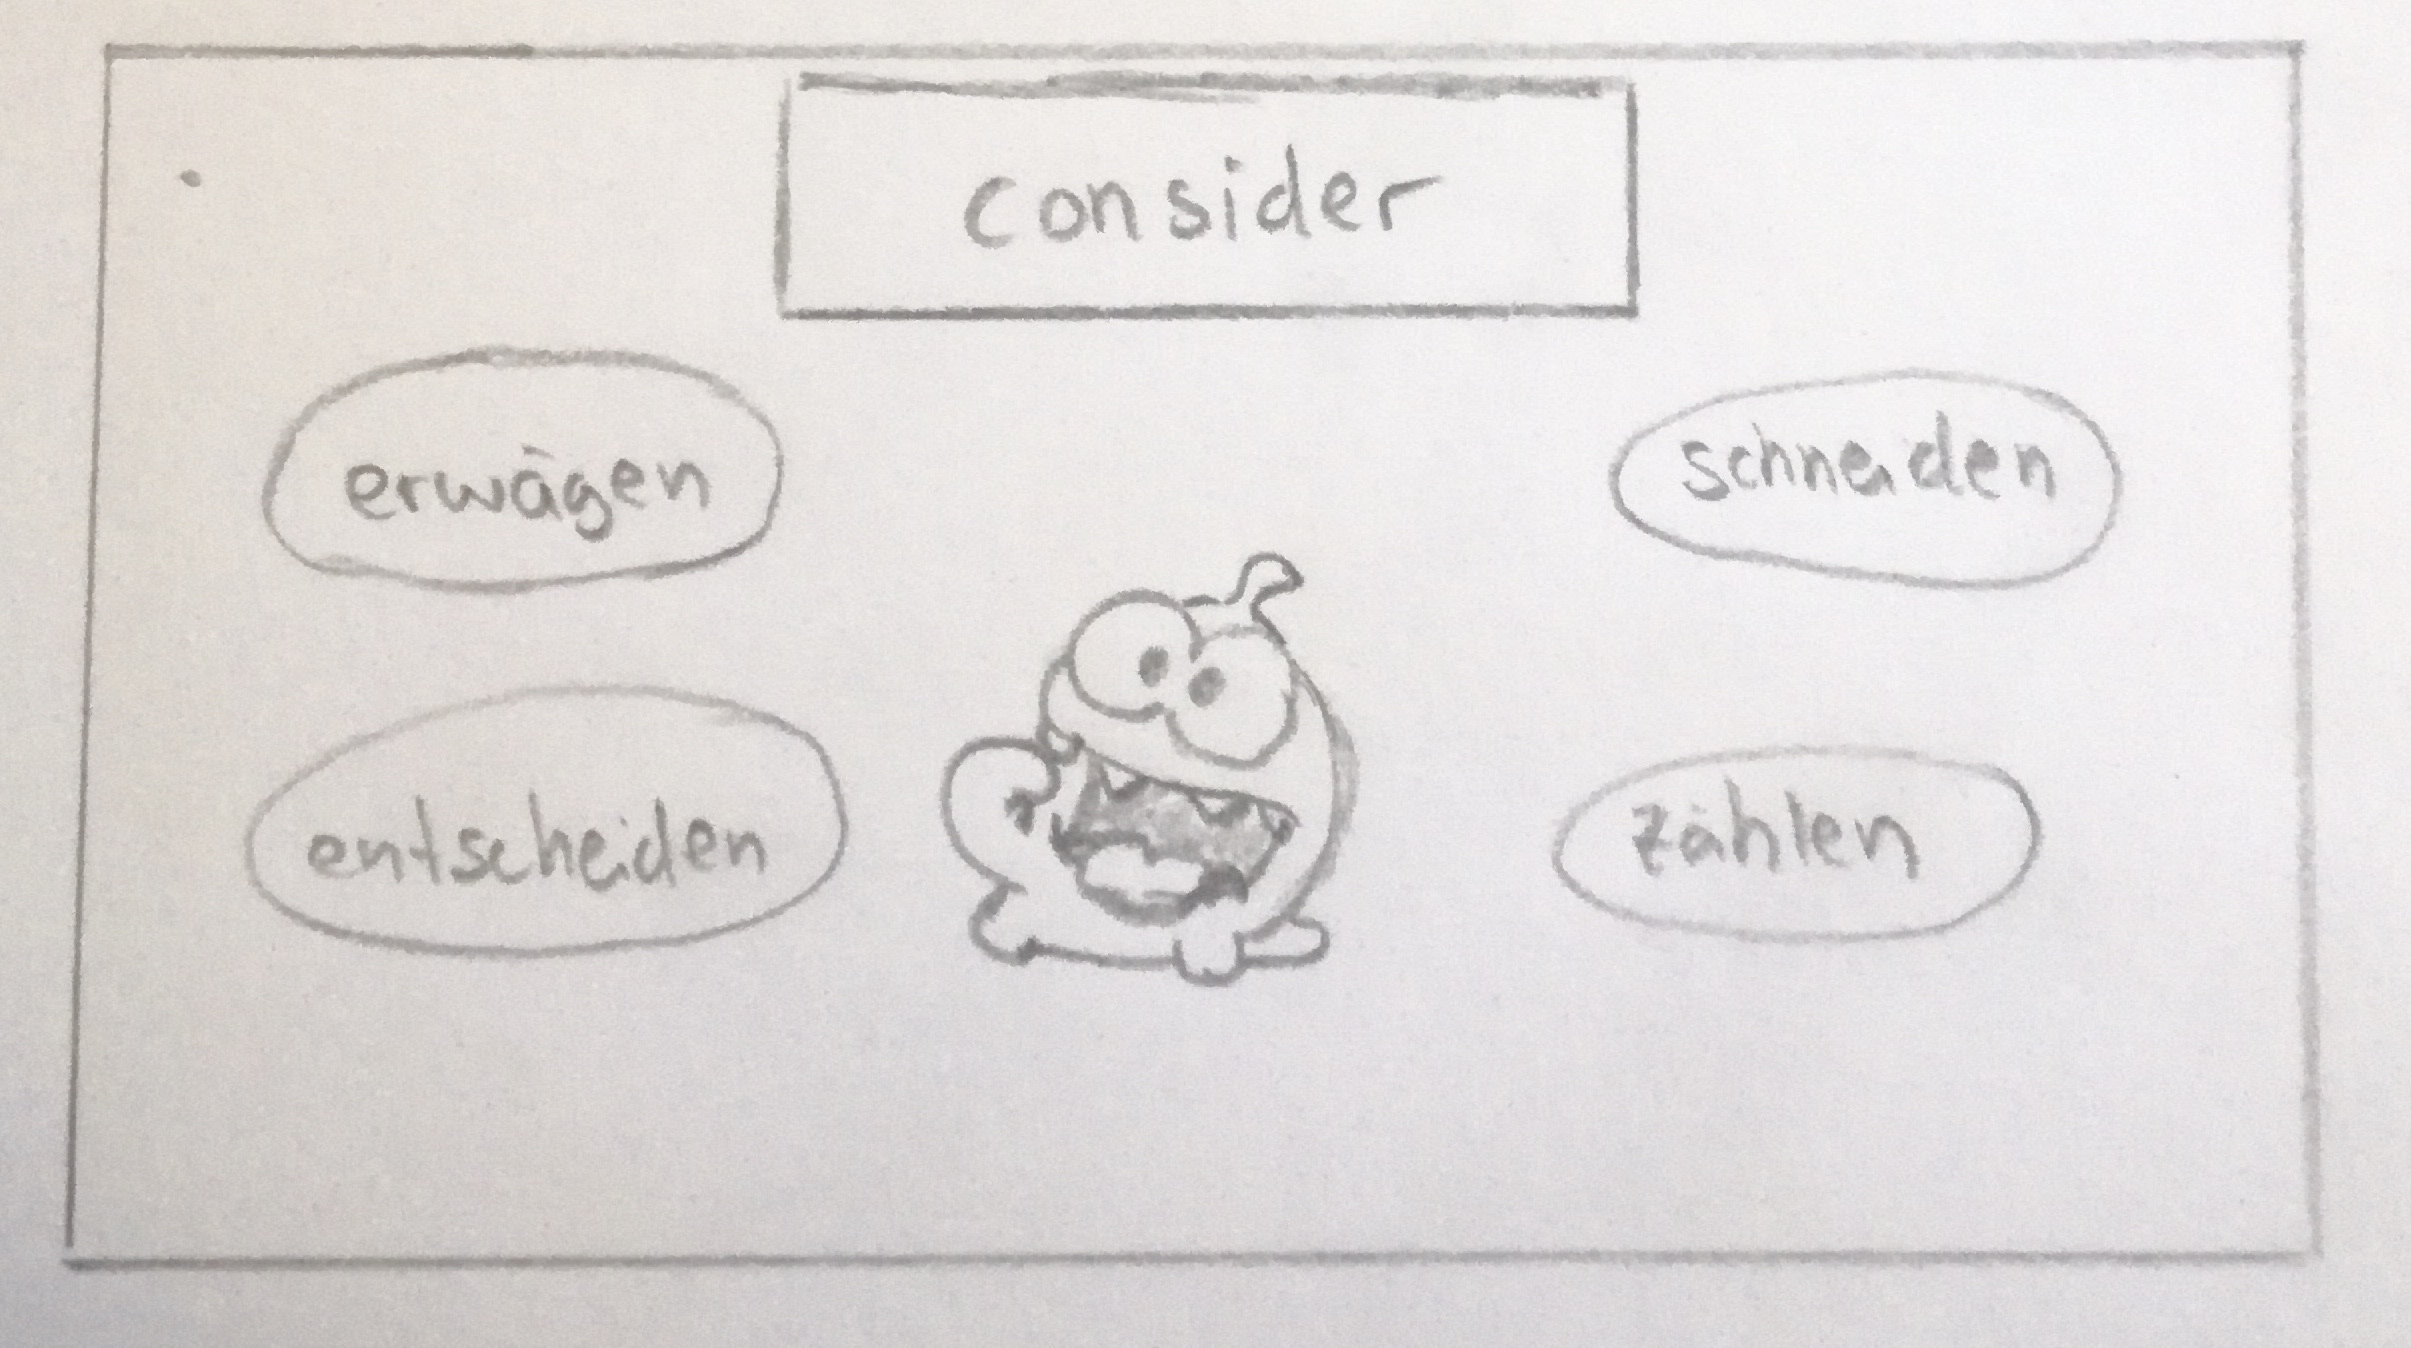 consider
erwägen
schneiden
entscheiden
zählen